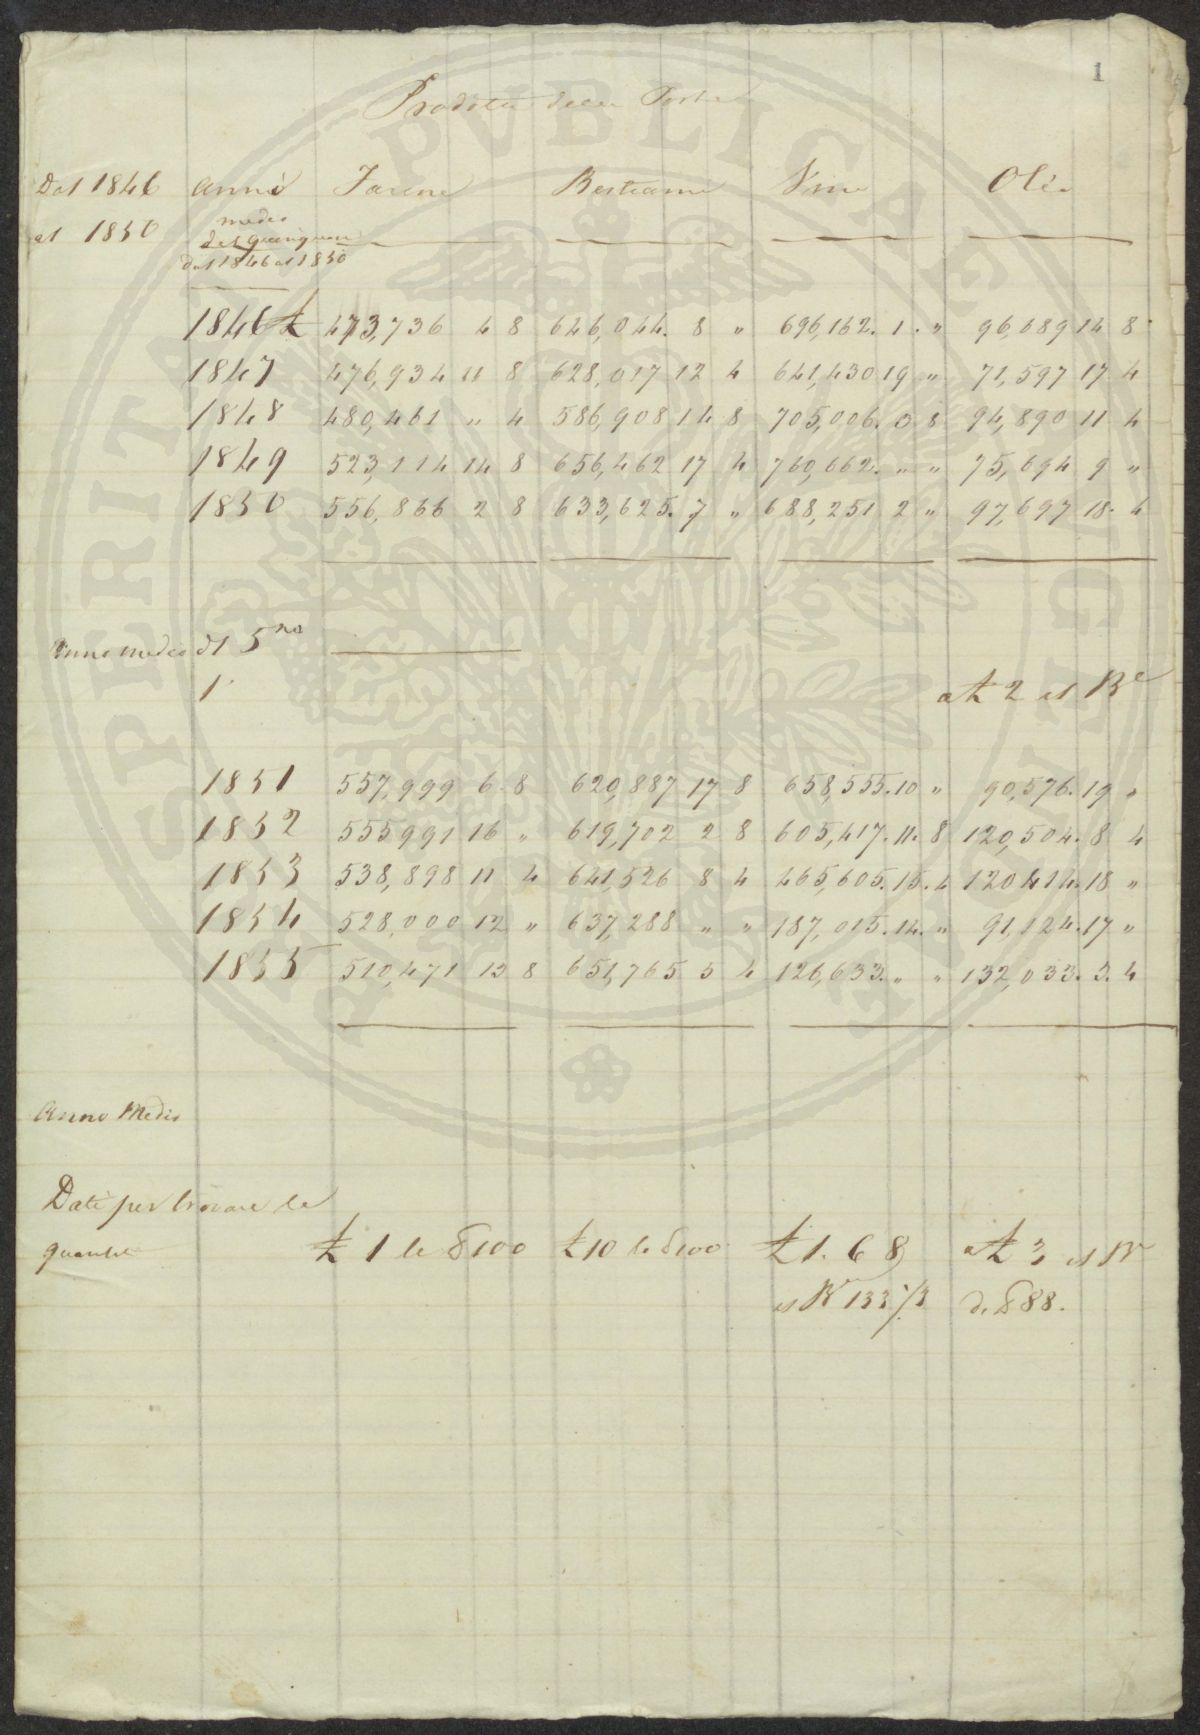 1
Prodotti delle Porte
Dal 1846 Anni Farine Bestiami Vino Olio
al 1850 medio
del quinquenn
dal 1846 al 1850
1846 £ 473,736 4 8 646,044. 8 " 696,162. 1. " 96,689 14 8
1847 476,934 11 8 628,017 12 4 641,430 19 " 71,597 17 4
1848 480,461 " 4 586,908 14 8 705,006. 0 8 94,890 11 4
1849 523,114 14 8 656,462 17 4 760,662. " " 75,694 9 "
1850 556,866 2 8 633,625. 7 " 688,251 2 " 97,697 18. 4
Anno medio di 5no
1 a £ 2 il Ble
1851 557,999 6. 8 620,887 17 8 658,555. 10 " 90,576. 19 "
1852 555991 16 " 619,702 2 8 605,417. 11. 8 120,504. 8 4
1853 538,898 11 4 641,526 8 4 465,605. 15. 4 120414. 18 "
1854 528,000 12 " 637,288 " " 187,015. 14. " 91,124. 17 "
1855 510,471 13 8 651,765 5 4 126,633. " " 132,033. 3. 4
Anno Medio
Dati per trovare le
quantità £ 1 le 100 £ 10 le 100 £ 1. 6 8 a £ 3 il Bl
il Bl 133 1/3 di 88.
ASPERITATI PVBLICAE AVGENDAE